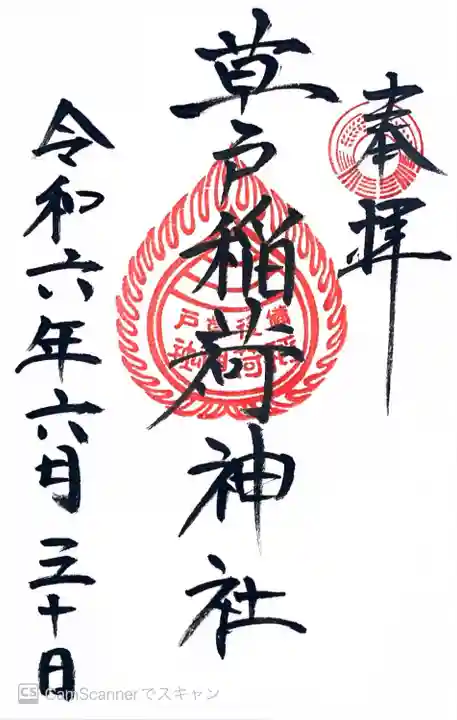 奉拝
草戸稲荷神社
令和六年六月三十日
CS CamScannerでスキャン